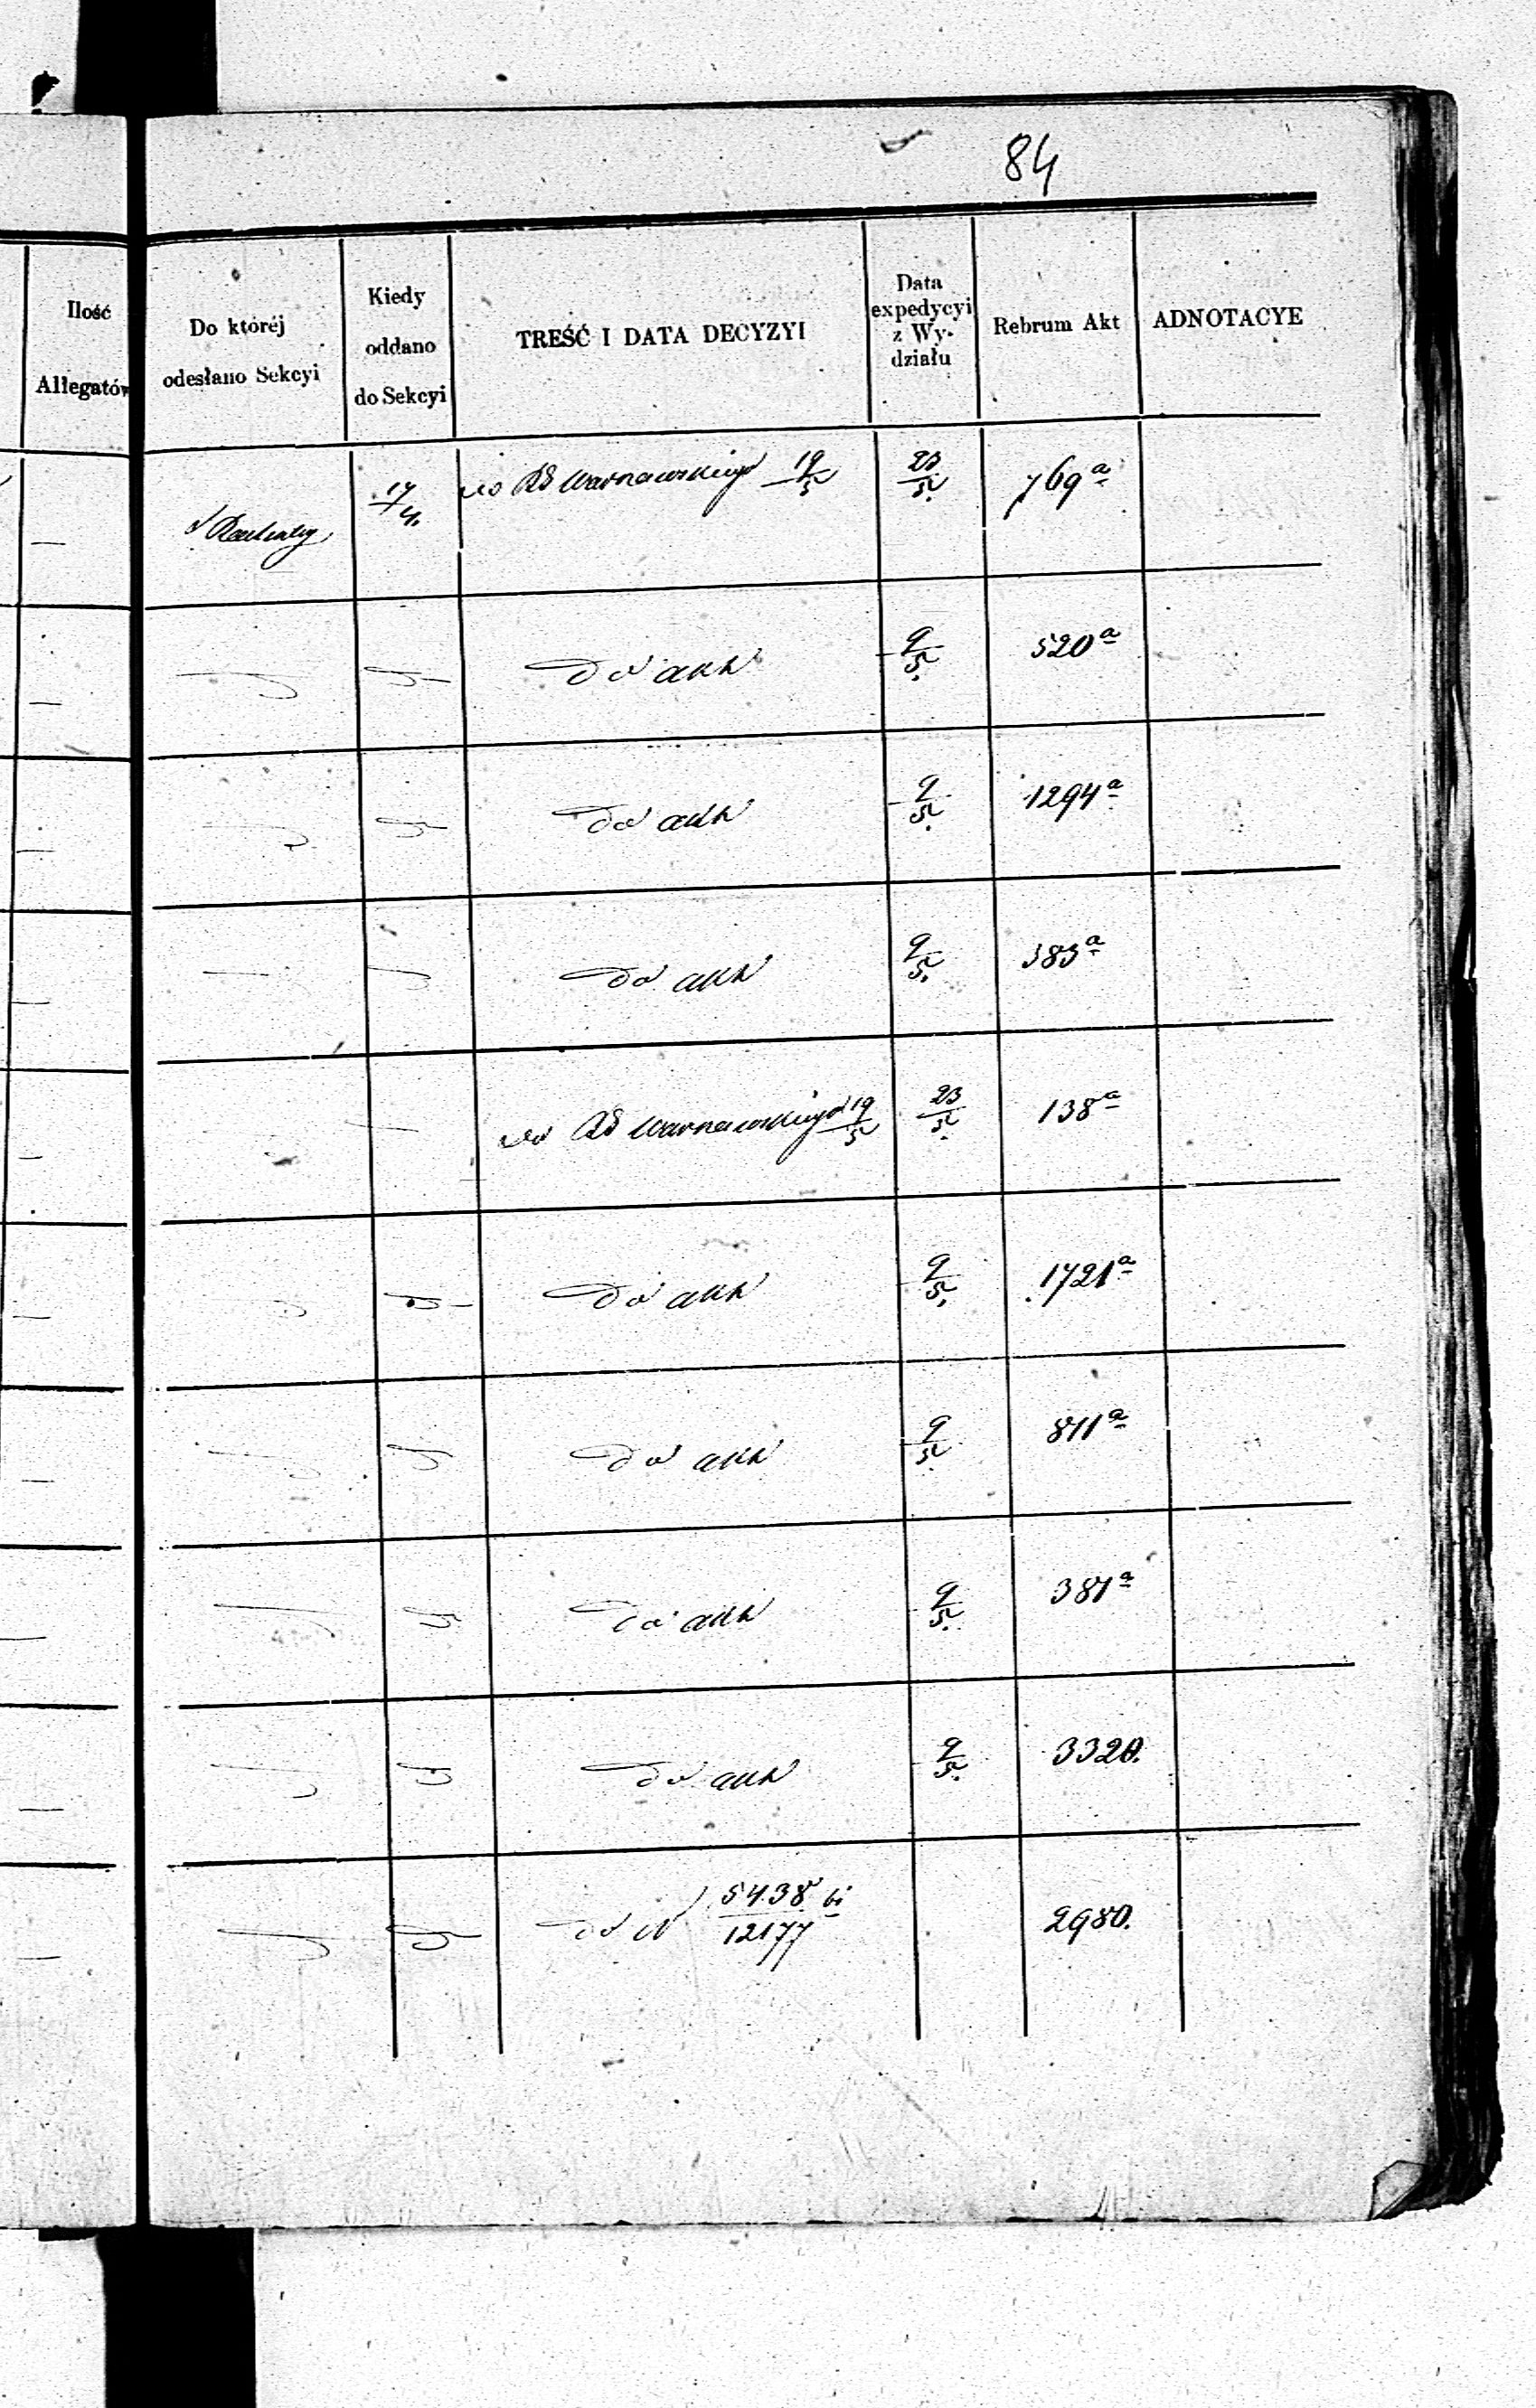 84
Ilość Allegatów
Do któréj odesłano Sekcyi
Kiedy oddano do Sekcyi
TREŚĆ I DATA DECYZYI
Data expedycyi z Wy-działu
Rebrum Akt
ADNOTACYE
17/4. do RG Warszawskiego 19/5 23/5. 769ª
do akt 9/5. 520ª
do akt 9/5. 1294ª
do akt 9/5. 383ª
do RG Warszawskiego 19/5 23/5. 138ª
do akt 9/5. 1721ª
do akt 9/5. 811ª
do akt 9/5. 381ª
do akt 9/5. 3320.
do N 5438/12177 2980.